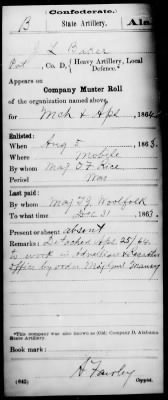 Confederate.
B State Artillery. Ala.
J L Baker
Pvt, Co. D, Heavy Artillery, Local Defence.*
Appears on
Company Muster Roll
of the organization named above,
for Mch & Apl, 1864.
Enlisted:
When Aug 5, 1863.
Where Mobile
By whom Maj T F Rice
Period War
Last paid:
By whom Maj T J Woolfolk
To what time Dec 31, 1863.
Present or absent absent
Remarks: Detached Apl 25/64
to work in Advertiser & Register
Office by order Maj Genl Maury
*This company was also known as (Old) Company D, Alabama
State Artillery.
Book mark:
(642)
Copyist.